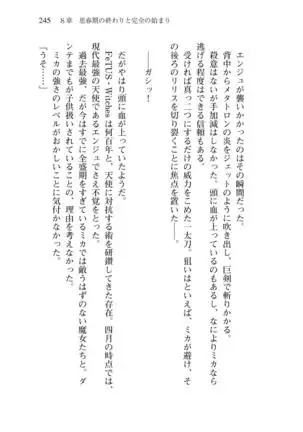 245　8章　思春期の終わりと完全の始まり
エンジュが襲いかかったのはその瞬間だった。
背中からメタトロンの炎をジェットのように吹き出し、巨剣で斬りかかる。
殺意はないが手加減はしなかった。頭に血が上っているのもあるし、なによりミカなら
逃げる程度はできる信頼もある。
受ければ真っ二つにするだけの威力をこめた一太刀。狙いはといえば、ミカが避け、そ
の後ろのリリスを切り裂くことに焦点を置いていた。
――ガシッ！
だがやはり頭に血が上っていたようだ。
FeTUS・Witchesは何百年と、天使に対抗する術を研鑽してきた存在。四月の時点では、
現代最強の天使であるエンジュでさえ不覚をとった。
過去最強、だが今はすでに全盛期をすぎているミカでは敵うはずのない魔女たちと。ダ
ンテまでが子供扱いされていることの、理由を考えなかった。
ミカの強さのレベルがおかしいことに気付かなかった。
「うそ……」